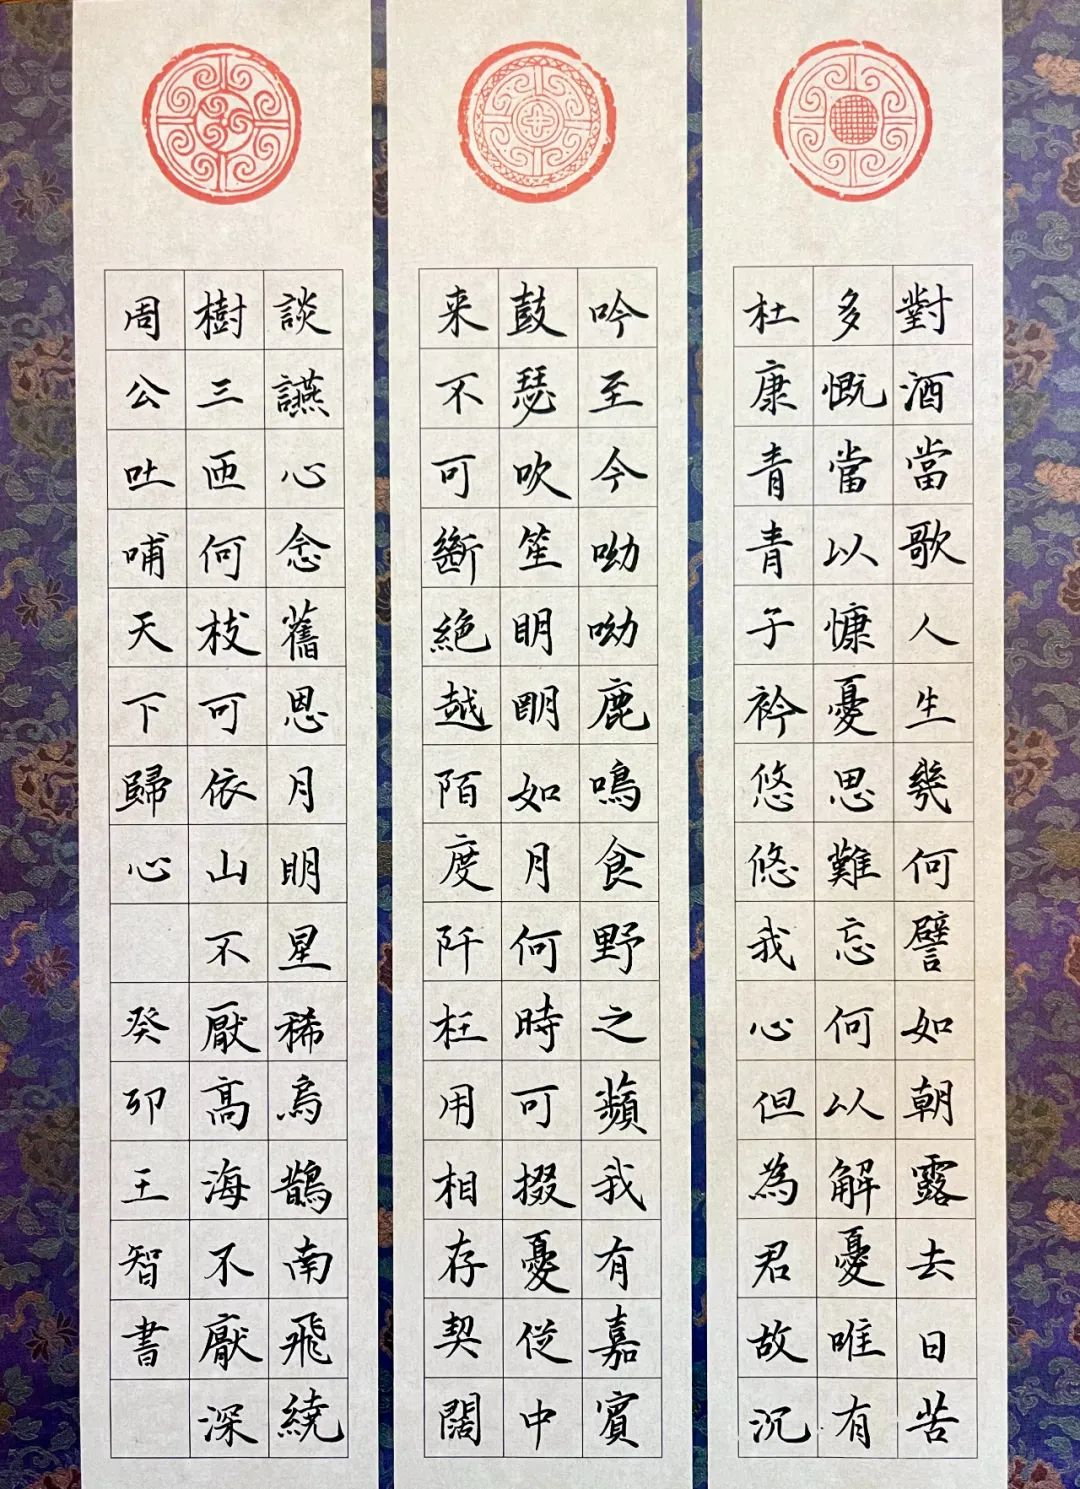 對酒當歌人生幾何譬如朝露去日苦
多慨當以慷憂思難忘何以解憂唯有
杜康青青子衿悠悠我心但為君故沉
吟至今呦呦鹿鳴食野之蘋我有嘉賓
鼓瑟吹笙明明如月何時可掇憂從中
来不可斷絕越陌度阡枉用相存契闊
談讌心念舊恩月明星稀烏鵲南飛繞
樹三匝何枝可依山不厭高海不厭深
周公吐哺天下歸心 癸卯王智書